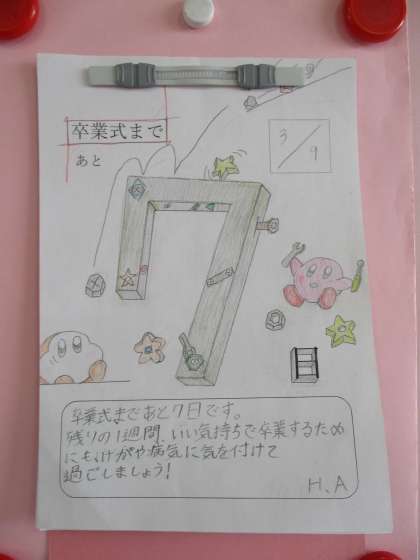 卒業式まで
あと
3/9
7
卒業式まであと7日です。
残りの1週間、いい気持ちで卒業するため
にも、けがや病気に気を付けて
過ごしましょう!
H.A